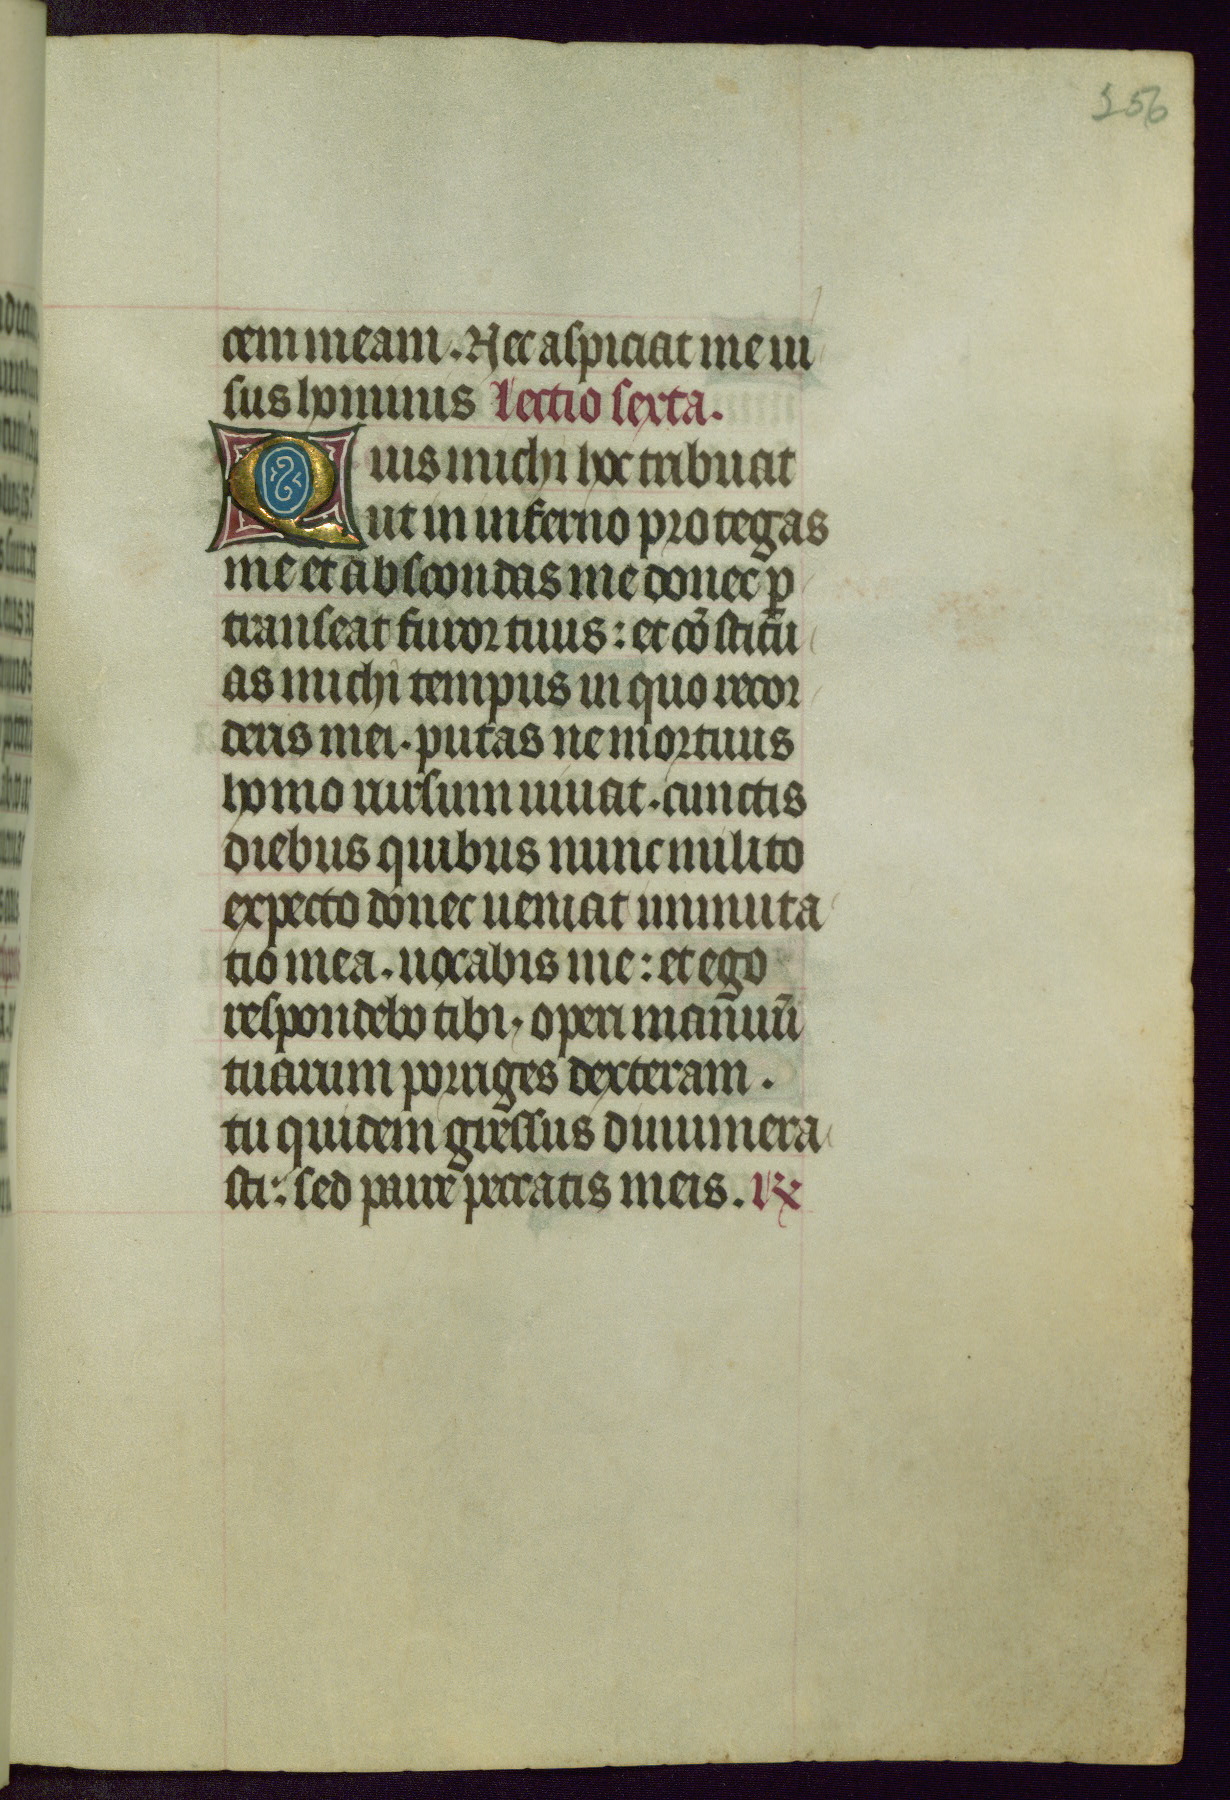 256
cem meam. Nec aspiciat me ui
sus hominis Lectio sexta.
Quis michi hoc tribuat
ut in inferno protegas
me et abscondas me donec ꝑ
transeat furor tuus: et cōstitu
as michi tempus in quo recor
deris mei. putas ne mortuus
homo rursum uiuat. cunctis
diebus quibus nunc milito
expecto donec ueniat inmuta
tio mea. uocabis me: et ego
respondebo tibi. operi manuū
tuarum porriges dexteram.
tu quidem gressus dinumera
sti: sed parce peccatis meis. ℟